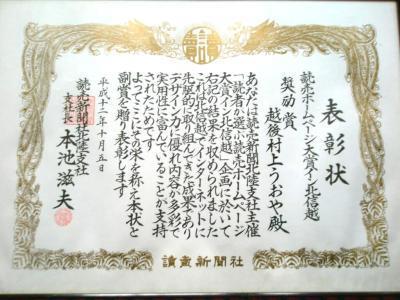 表彰状
読売ホームページ大賞イン北信越
奨励賞
越後村上うおや殿
あなたは読売新聞北陸支社主催
「読者が選ぶ読売ホームページ
大賞イン北信越」企画において
右記の結果を収められました
これは北信越でインターネットに
先駆的に取り組んできた成果であり
デザイン力に優れ内容が多彩で
実用性に富んでいることが支持
されたためです
よってここにその栄を称え本状と
副賞を贈り表彰します
平成十二年十月五日
読売新聞北陸支社
支社長 本池滋夫
讀賣新聞社